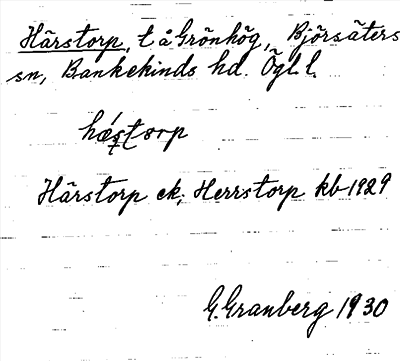 Härstorp, t å Grönhög, Björsäters
sn, Bankekinds hd. Ögl. l.
hǽstorp
Härstorp ek; Herrstorp kb 1929
G. Granberg 1930